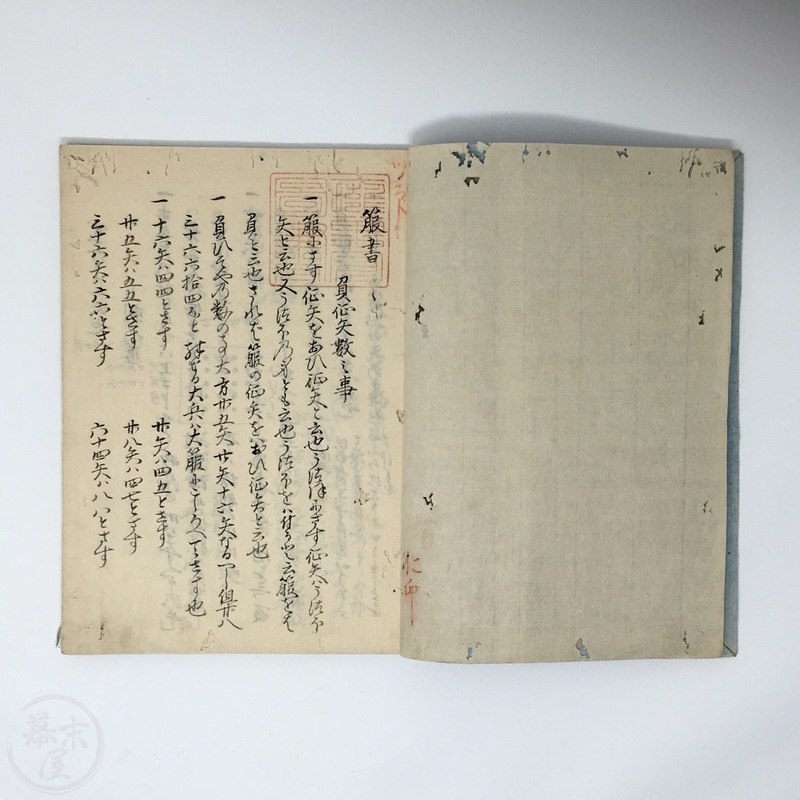 箙書
負征矢数之事
一 箙にさす征矢をおひ征矢と云也うつほにさす征矢ハうつほ
矢と云也又うつほの矢とも云也うつほをハ付ると云箙をは
負と云也されは箙の征矢をおひ征矢と云也
一 負ひそやの数の事大方廿五矢廿矢十六矢なるへし但廿八
三十六六拾四なと
大兵ハ大箙にこしらへてさす也
一 十六矢ハ四四とさす 廿矢ハ四五とさす
廿五矢ハ五五とさす 廿八矢ハ四七とさす
三十六矢ハ六六とさす 六十四矢ハ八八とさす
幕末屋